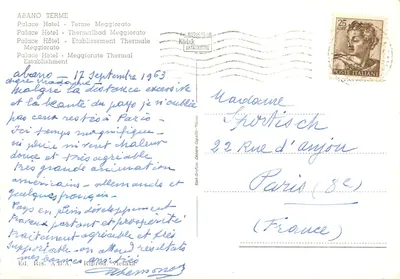 ABANO TERME
Palace Hotel - Terme Meggiorato
Palace Hotel - Thermalbad Meggiorato
Palace Hôtel - Etablissement Thermale
Meggiorato
Palace Hotel - Meggiorato Thermal
Establishment
25
POSTE ITALIANE
Abano - 17 Septembre 1963
Malgré la distance excessive
et la beauté du pays je n'oublie
pas ceux restés à Paris -
Ici temps magnifique -
ni pluie ni vent chaleur
douce et très agréable
très grande animation
américains - allemands et
quelques français -
Pays en plein développement
travaux partout et prospérité
traitement agréable et très
supportable - on attend résultats
mes bonnes amitiés
Madame
Sportisch
22 Rue d'anjou
Paris (8e)
(France)